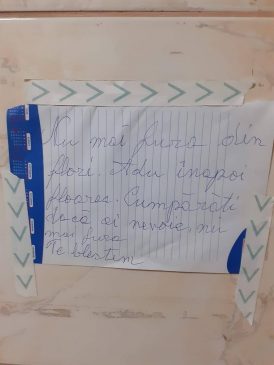 Nu mai fura din
flori. Adu înapoi
floarea. Cumpărăti
dacă ai nevoie, nu
mai fura
Te blestem